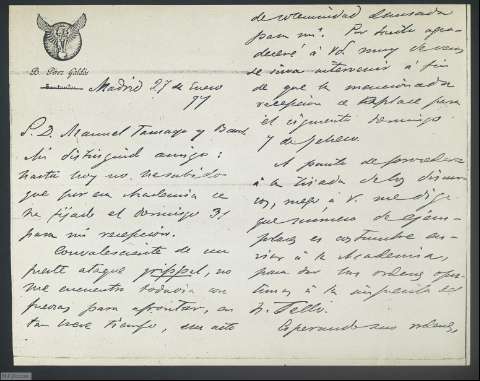 B. Pérez Galdós
Santander
Madrid 27 de Enero
97
S. D. Manuel Tamayo y Baus
Mi distinguido amigo:
hasta hoy no he sabido
que por esa Academia se
ha fijado el domingo 31
para mi recepción.
Convaleciente de un
fuerte ataque grippal, no
me encuentro todavia con
fuerzas para afrontar, en
tan breve tiempo, un acto
de solemnidad
para mi. Por tanto agra-
deceré á Vd. muy de veras
se sirva intervenir á fin
de que la mencionada
recepcion se aplace para
el siguiente domingo
7 de febrero.
A punto de proceder
á la tirada de los discur-
sos, ruego á V. me diga
que numero de ejem-
plares es costumbre en-
viar á la Academia,
para dar las ordenes opor-
tunas á la imprenta de
Tello.
Esperando sus ordenes,